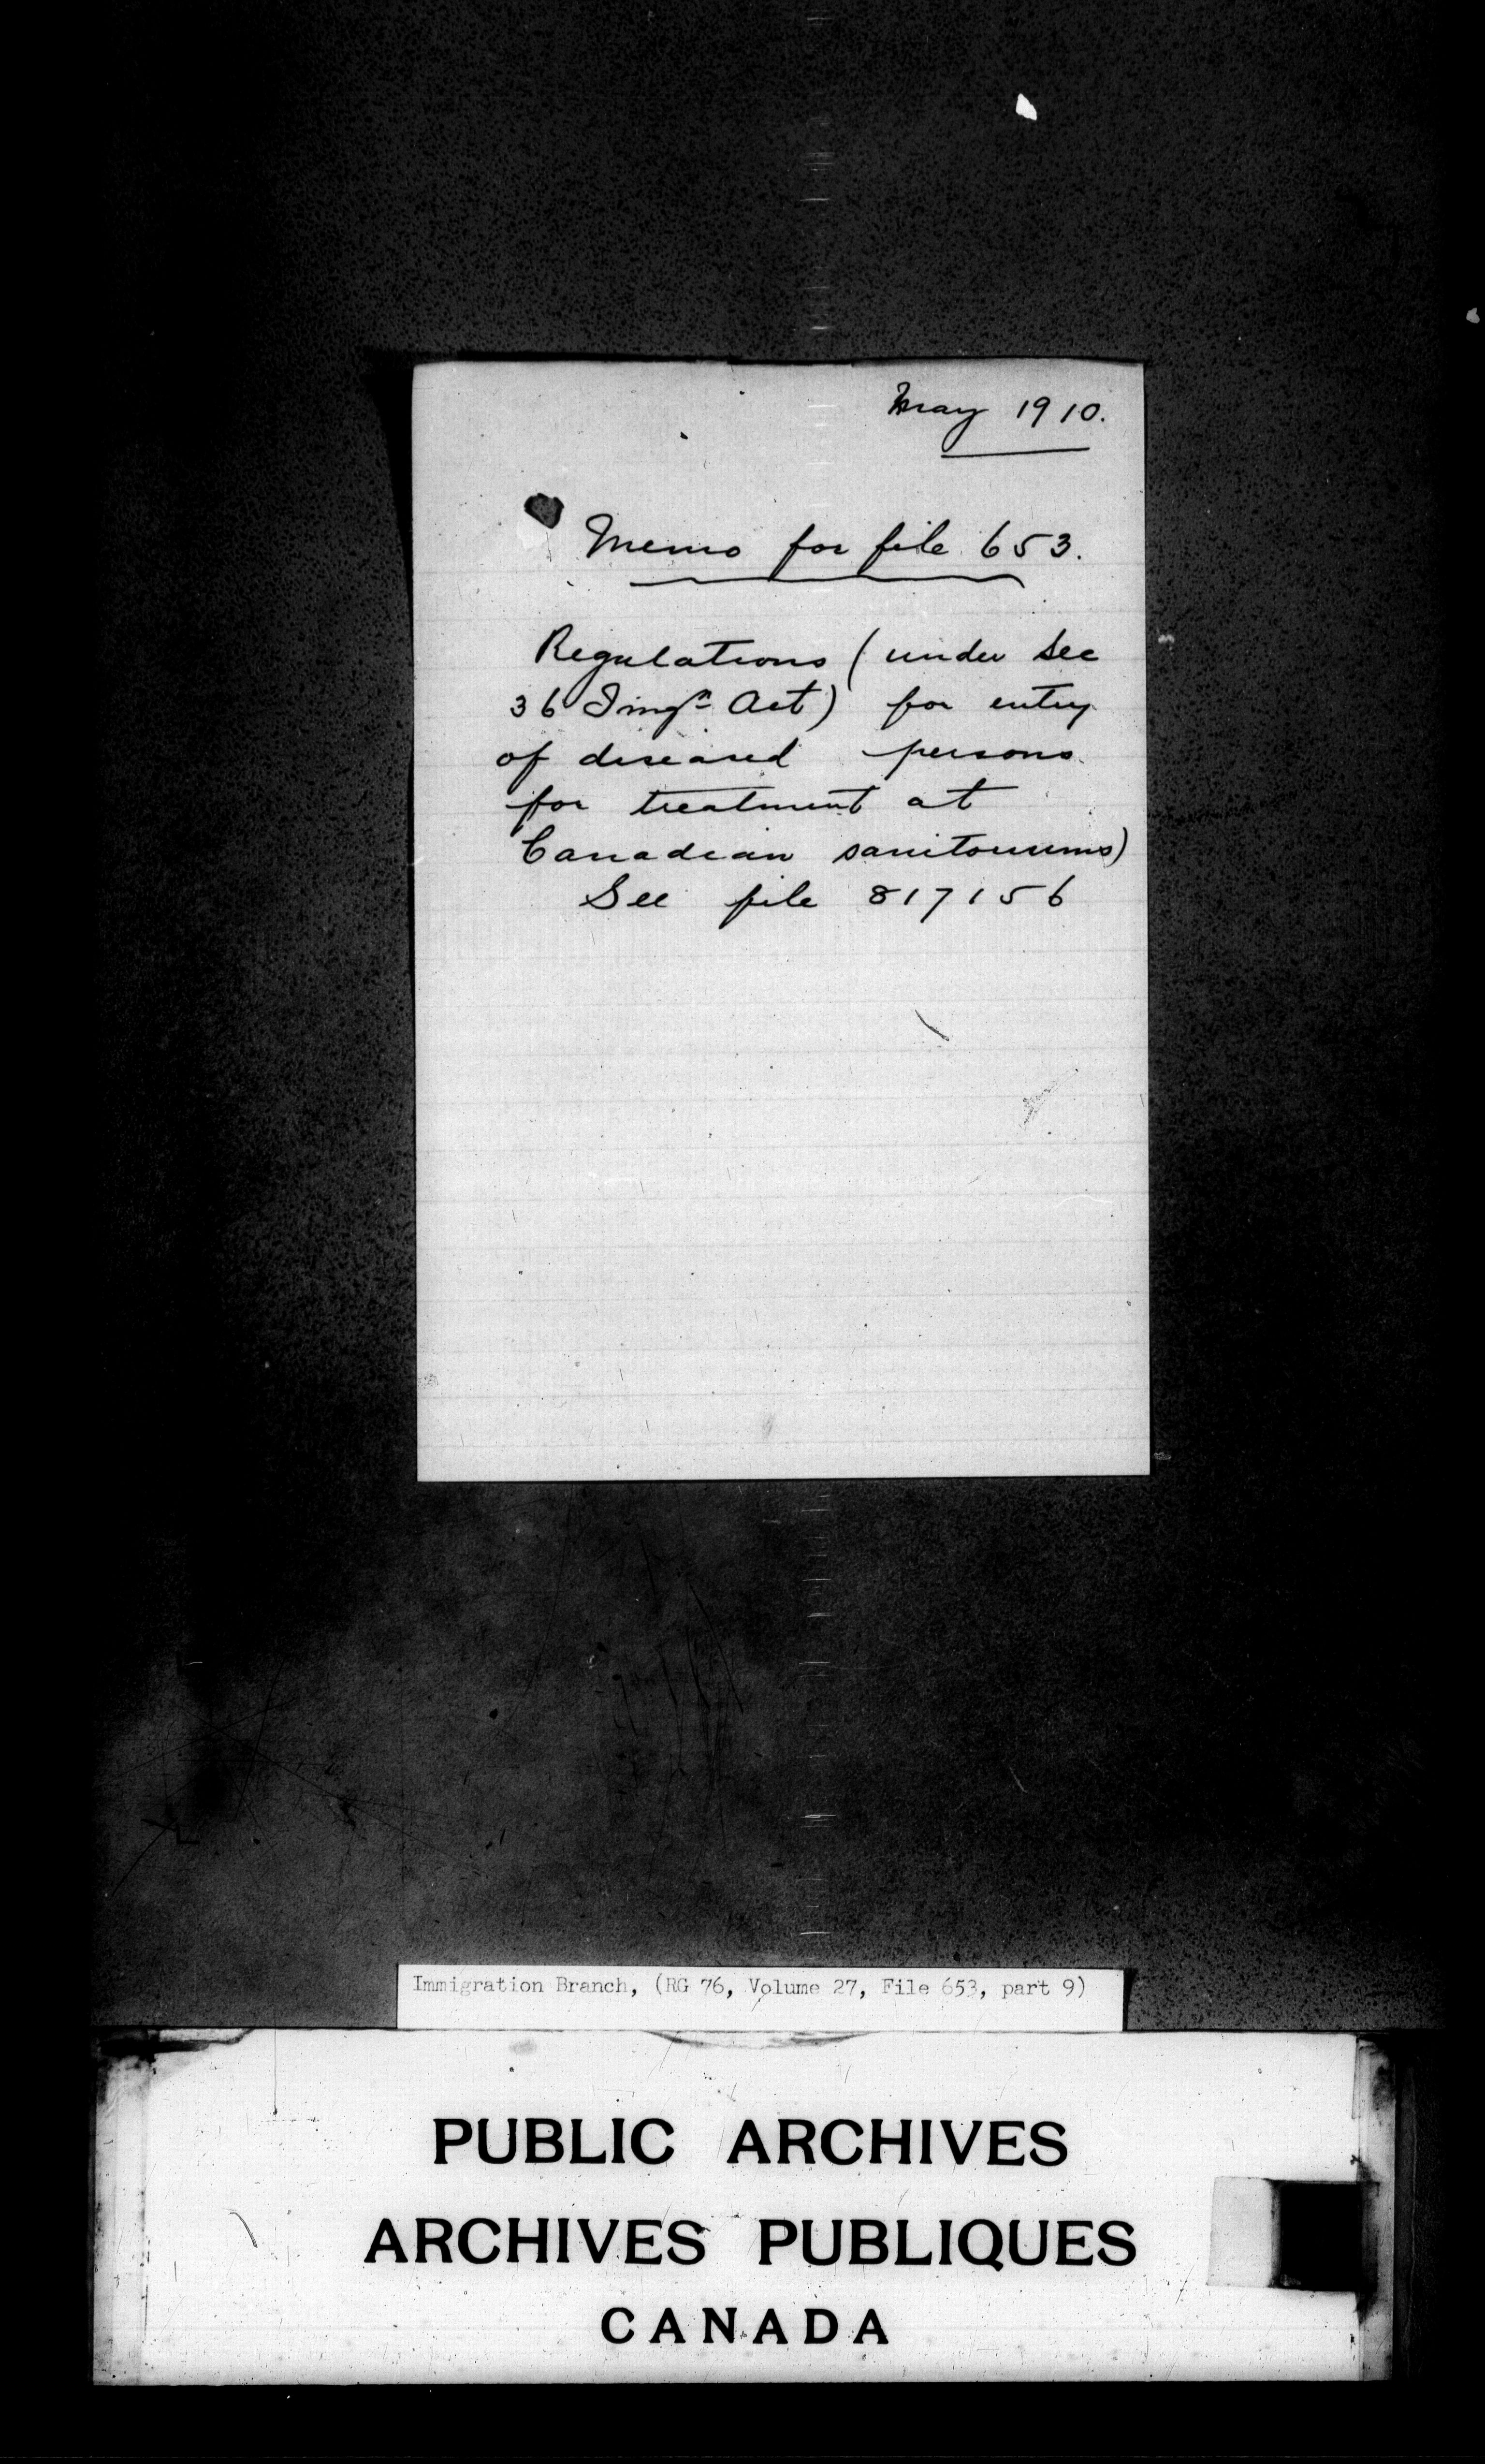 May 1910.
Memo for file 653.
Regulations (under Sec
36 Imgn Act) for entry
of diseased persons
for treatment at
Canadian sanitoriums)
See file 817156
Immigration Branch, (RG 76, Volume 27, File 653, part 9)
PUBLIC ARCHIVES
ARCHIVES PUBLIQUES
CANADA